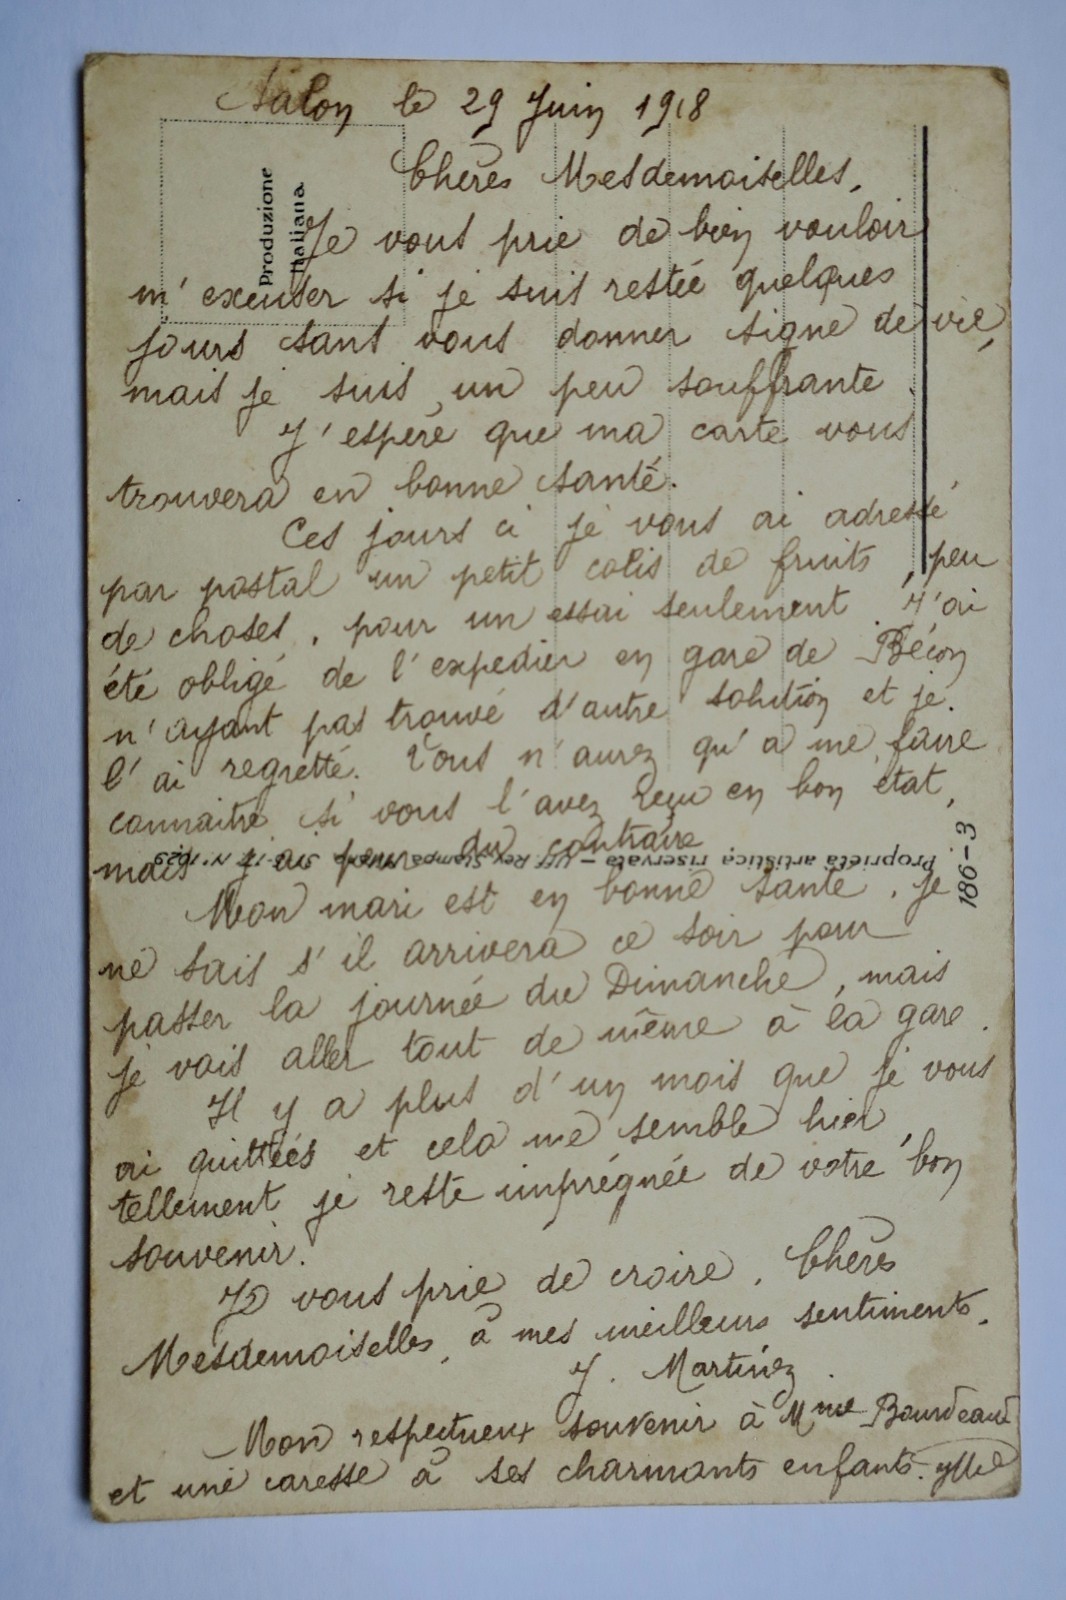 Salon le 29 Juin 1918
Chères Mesdemoiselles,
Je vous prie de bien vouloir
m'excuser si je suis restée quelques
jours sans vous donner signe de vie,
mais je suis un peu souffrante.
J'espère que ma carte vous
trouvera en bonne santé.
Ces jours ci je vous ai adressé
par postal un petit colis de fruits, peu
de choses, pour un essai seulement. J'ai
été obligé de l'expedier en gare de Bécon
n'ayant pas trouvé d'autre solution et je
l'ai regretté. Vous n'aurez qu'à me faire
connaitre si vous l'avez reçu en bon état,
mais j'ai peur du contraire
Mon mari est en bonne santé, je
ne sais s'il arrivera ce soir pour
passer la journée du Dimanche, mais
je vais aller tout de même à la gare.
Il y a plus d'un mois que je vous
ai quittées et cela me semble hier,
tellement je reste imprégnée de votre bon
souvenir.
Je vous prie de croire, Chères
Mesdemoiselles, à mes meilleurs sentiments.
Y. Martinez
Mon respectueux souvenir à Mme Bourdeaud
et une caresse à ses charmants enfants.
Produzione
Italiana
Proprietà artistica riservata — Rex Stampa N. 1029
186-3